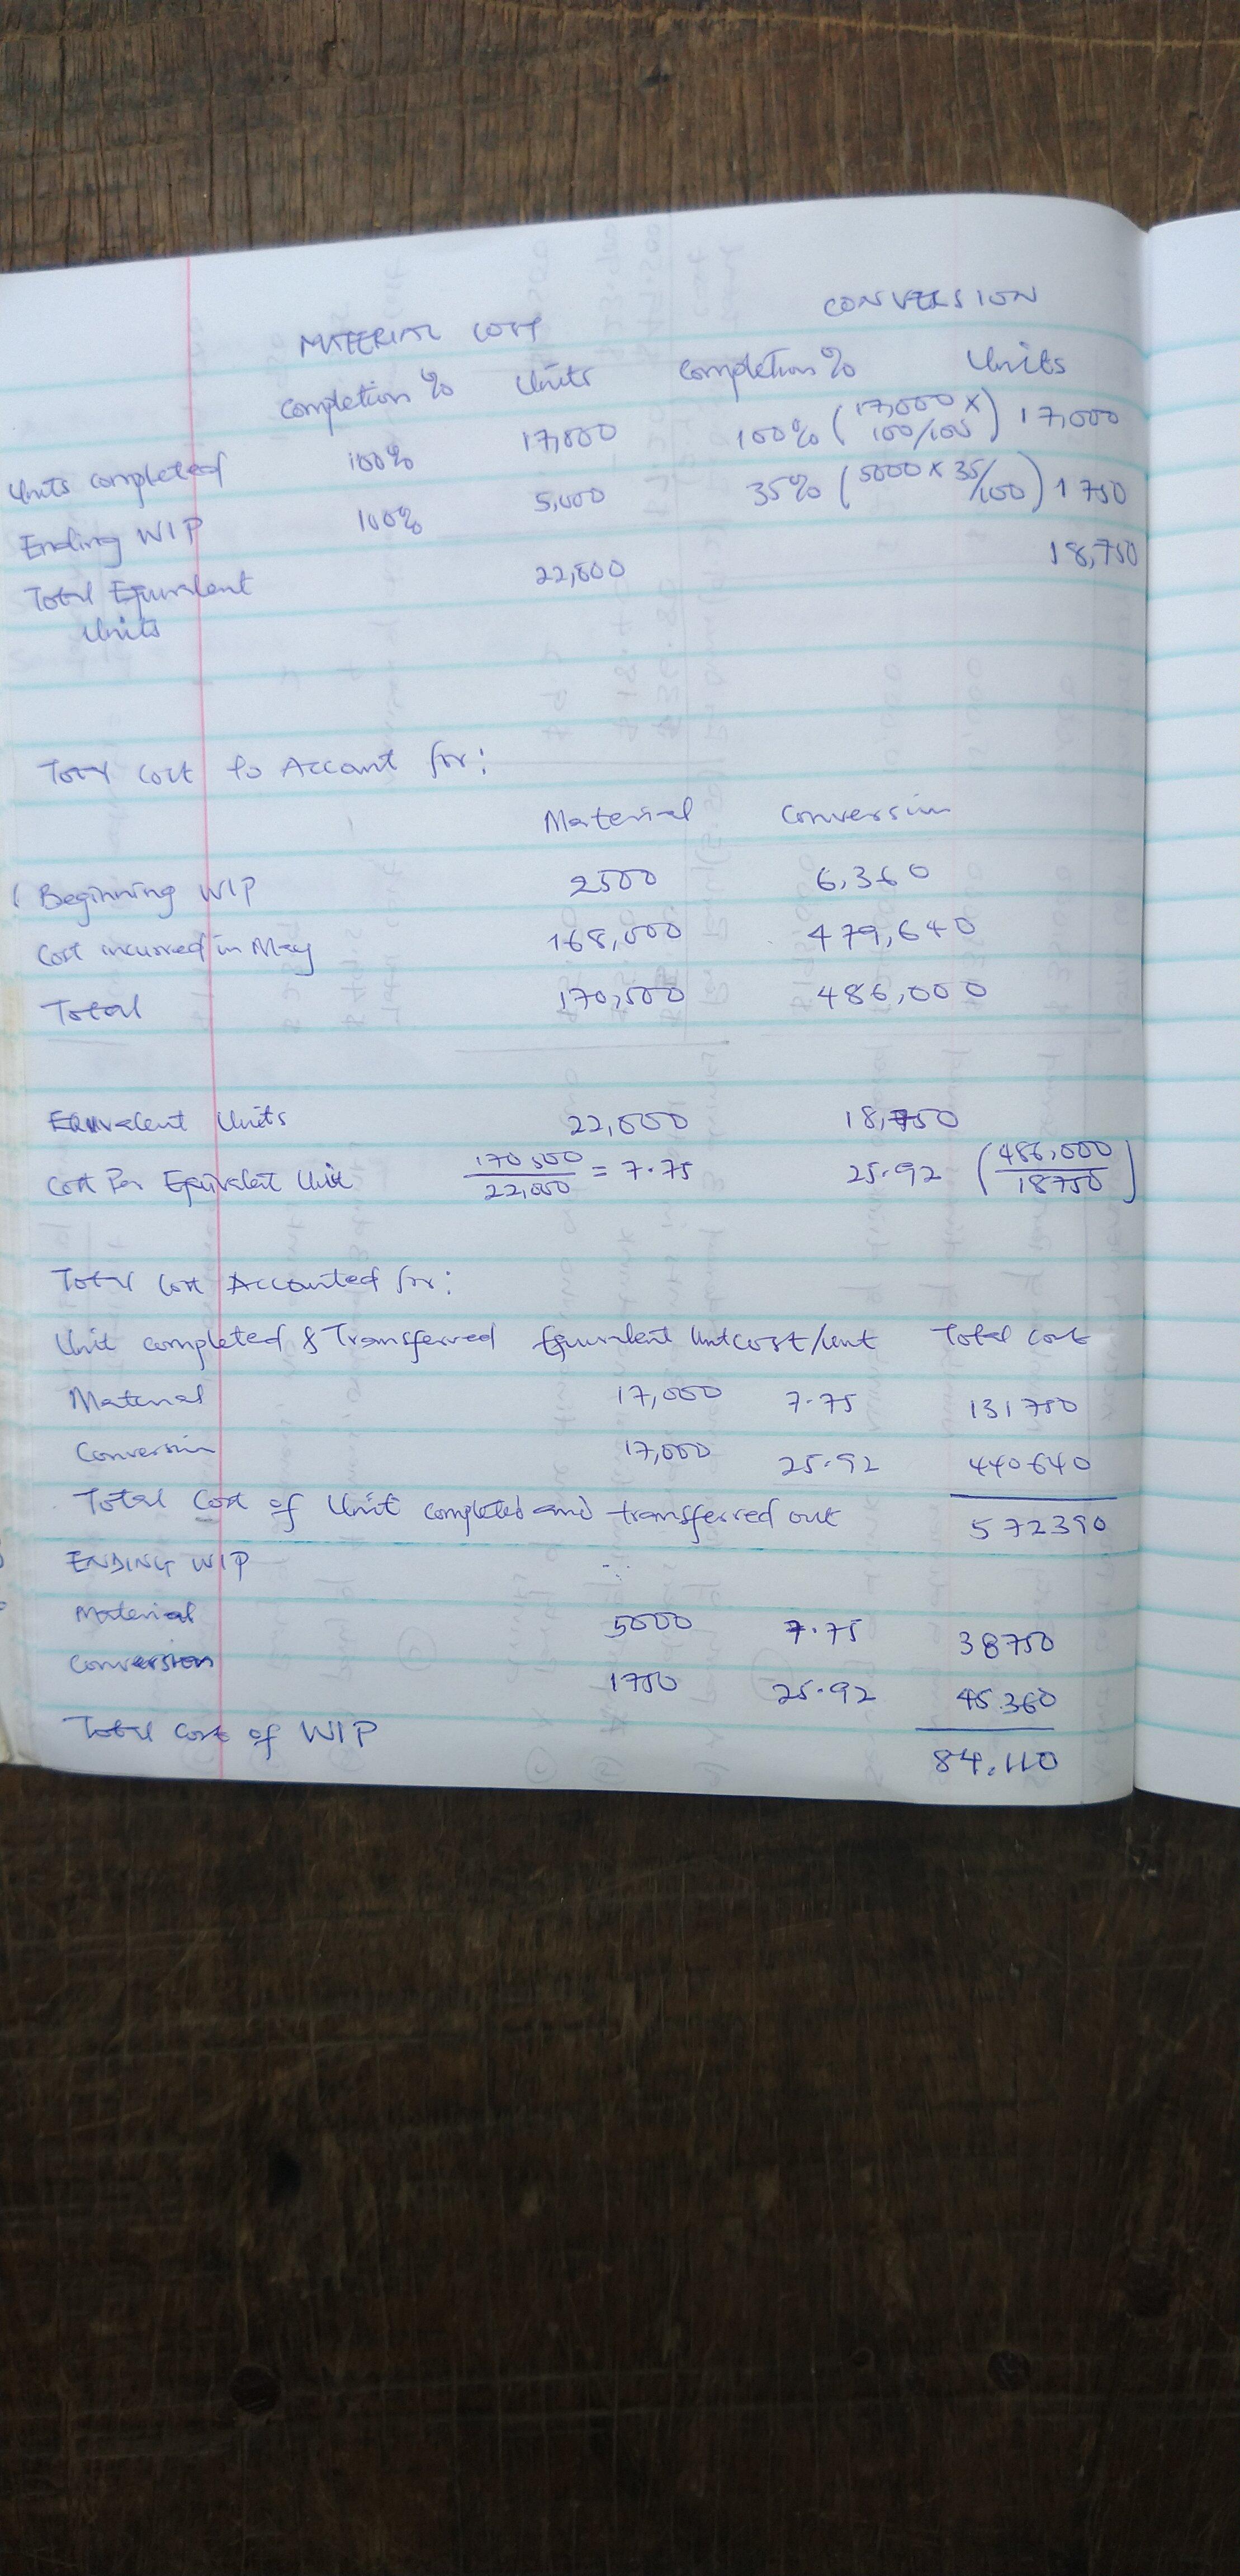 CONVERSION
MATERIAL COST
Completion % Units Completion % Units
Units completed 100% 17,000 100% (17,000 x 100/100) 17,000
Ending WIP 100% 5,000 35% (5000 x 35/100) 1750
Total Equivalent Units 22,000 18,750
Total Cost to Account for:
Material Conversion
Beginning WIP 2500 6,360
Cost incurred in May 168,000 479,640
Total 170,500 486,000
Equivalent Units 22,000 18,750
Cost Per Equivalent Unit 170500/22,000 = 7.75 25.92 (486,000/18750)
Total Cost Accounted for:
Unit completed & Transferred Equivalent Unit cost/unit Total cost
Material 17,000 7.75 131750
Conversion 17,000 25.92 440640
Total Cost of Unit completed and transferred out 572390
ENDING WIP
Material 5000 7.75 38750
Conversion 1750 25.92 45.360
Total Cost of WIP 84.110